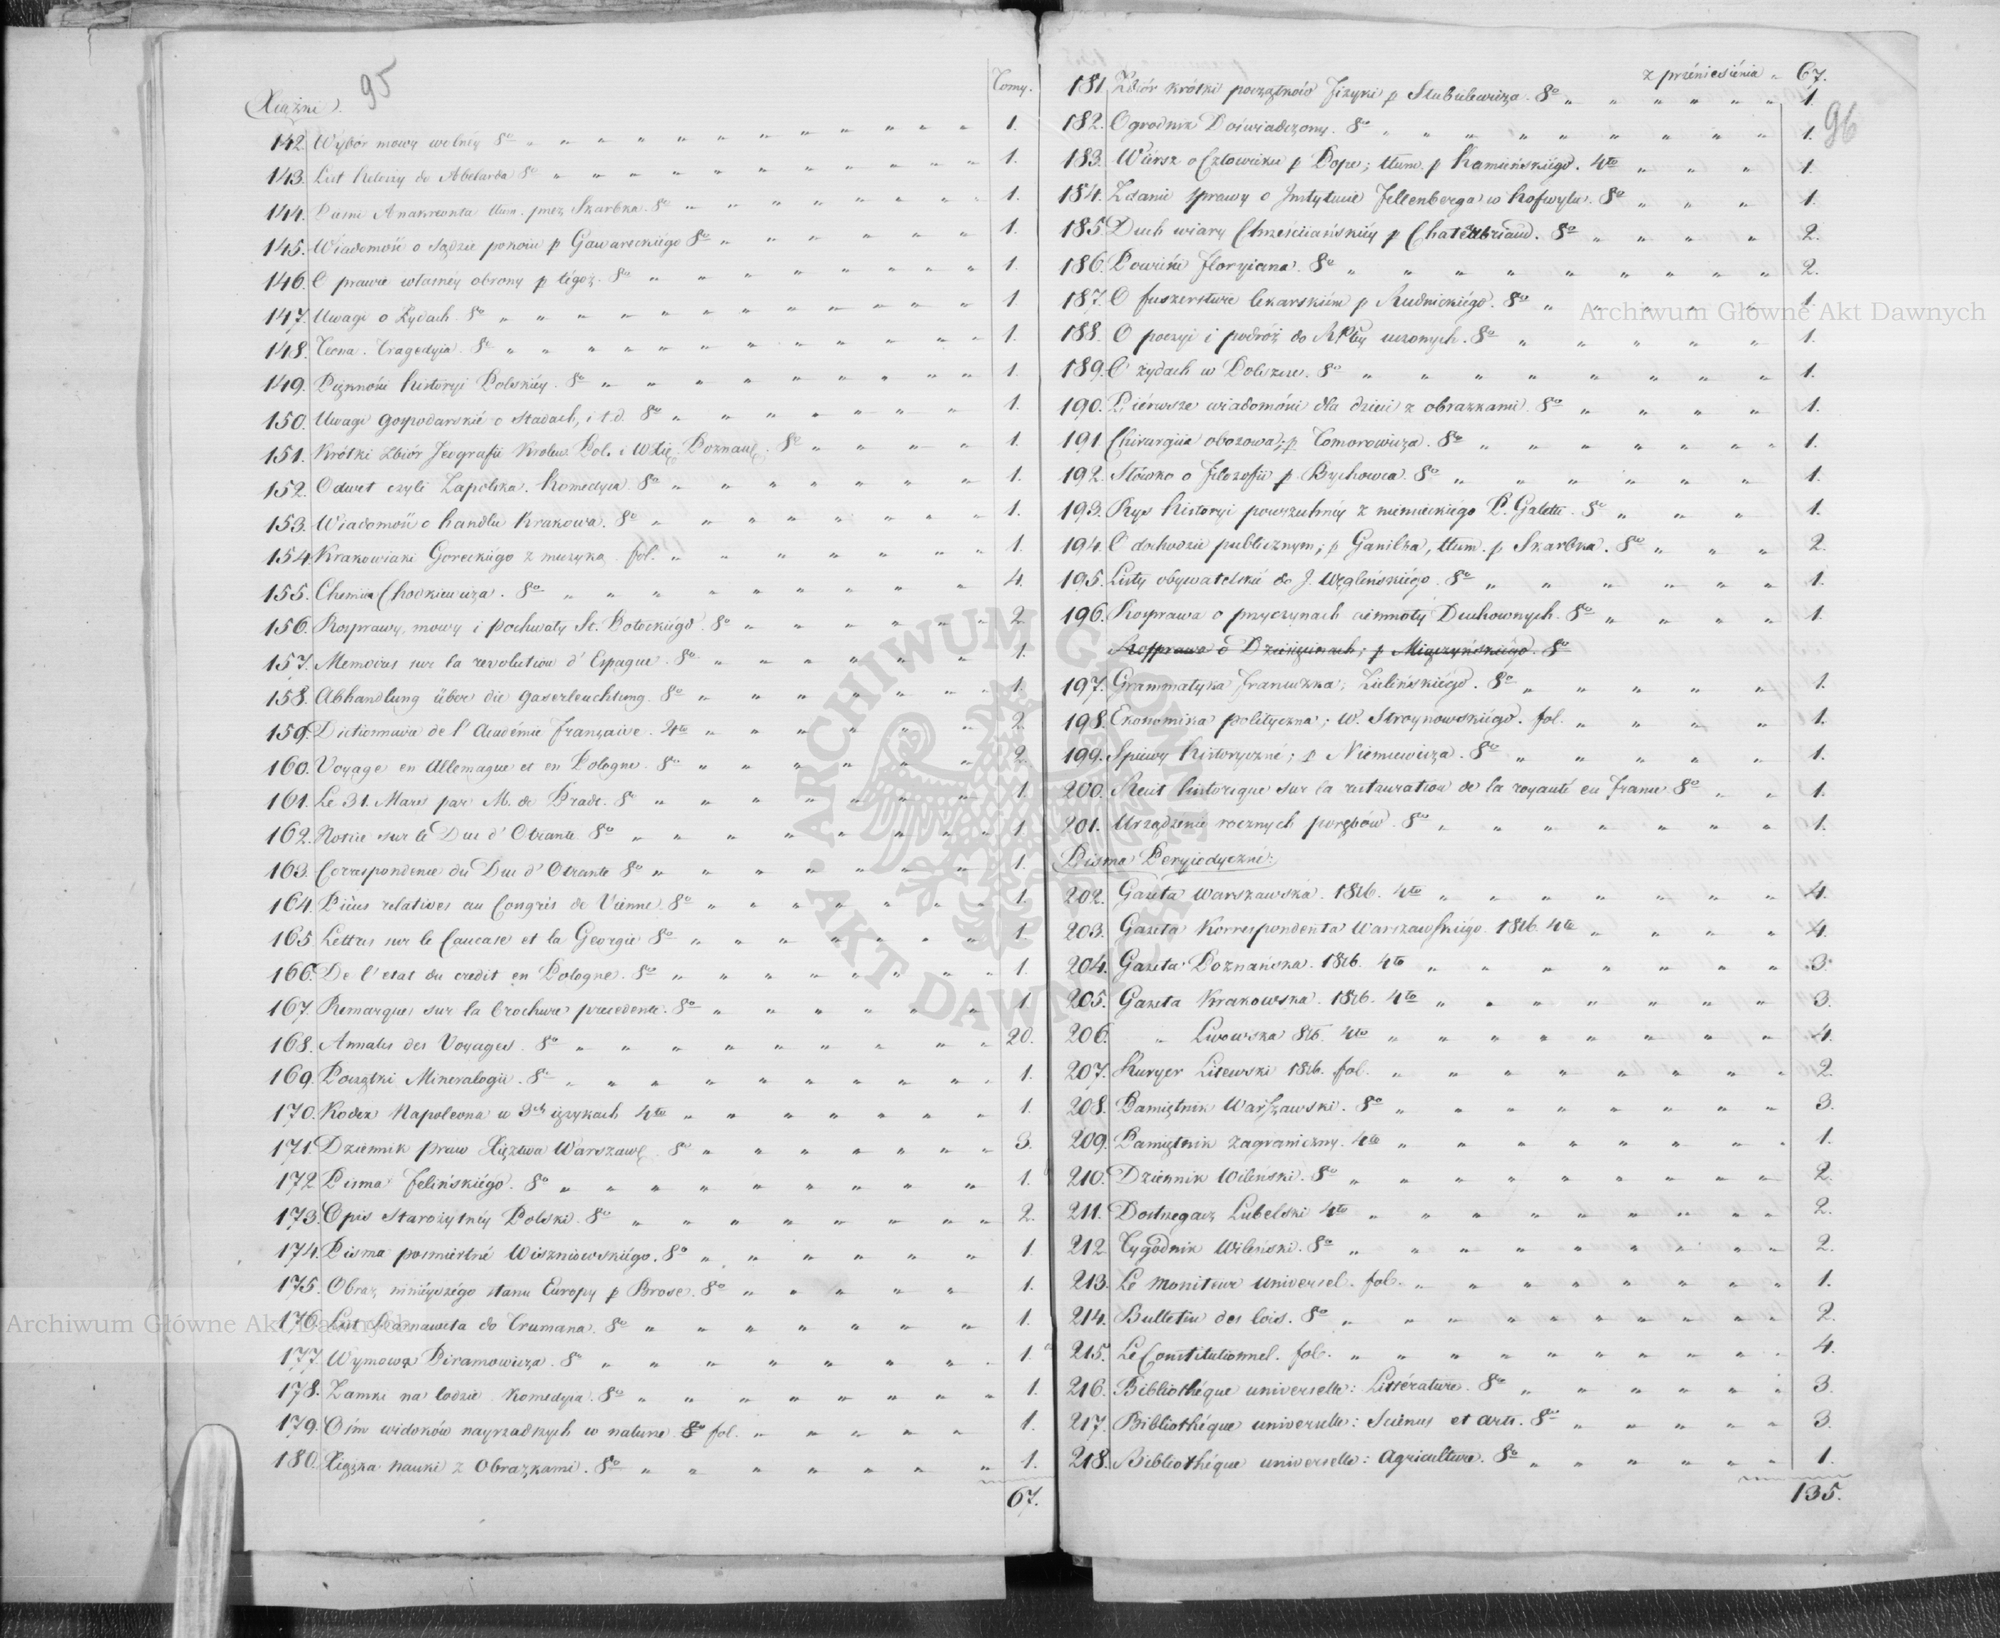 95
Xiążki.
Tomy.
142. Wybór mowy wolnéy 8o 1.
143. List Heloizy do Abelarda 8o 1.
144. Pieśni Anakreonta tłum. przez Skarbka. 8o 1.
145. Wiadomość o sądzie pokoiu p Gawareckiégo 8o 1.
146. O prawie własnéy obrony p tégoż. 8o 1.
147. Uwagi o Żydach. 8o 1
148. Leona. Tragedyia. 8o 1.
149. Piękności historyi Polskiéy. 8o 1.
150. Uwagi gospodarskié o stadach, i t.d. 8o 1.
151. Krótki zbiór Jeografii Krolew. Pol. i W. Xię. Poznań. 8o 1.
152. Odwet czyli Zapolska. Komedyia. 8o 1.
153. Wiadomość o handlu Krakowa. 8o 1.
154. Krakowiaki Goreckiégo z muzyką. fol. 1.
155. Chemiia Chodkiewicza. 8o 4.
156. Rosprawy, mowy i pochwały St. Potockiégo. 8o 2.
157. Memoires sur la revolution d'Espagne. 8o 1.
158. Abhandlung über die Gaserleuchtung. 8o 1.
159. Dictionnaire de l'Académie Française. 4to 2.
160. Voyage en Allemagne et en Pologne. 8o 2.
161. Le 31. Mars par M. de Pradt. 8o 1.
162. Notice sur le Duc d'Otrante. 8o 1.
163. Correspondence du Duc d'Otrante 8o 1.
164. Piéces relatives au Congrés de Vienne. 8o 1.
165. Lettres sur le Caucase et la Georgie 8o 1.
166. De l'etat du credit en Pologne. 8o 1.
167. Remarques sur la brochure precedente. 8o 1.
168. Annales des Voyages. 8o 20.
169. Początki Mineralogii. 8o 1.
170. Kodex Napoleona w 3ch ięzykach 4to 1.
171. Dziennik praw Xięztwa Warszaw. 8o 3.
172. Pisma Felińskiégo. 8o 1.
173. Opis Starożytnéy Polski. 8o 2.
174. Pisma posmiertné Wiszniowskiégo. 8o 1.
175. Obraz ninieyszégo stanu Europy p Brose. 8o 1.
176. List Karnawata do Trumana. 8o 1.
177. Wymowa Piramowicza. 8o 1.
178. Zamki na lodzie. Komedyia. 8o 1.
179. Ośm widoków nayrzadszych w naturze. 8o fol. 1.
180. Xiążka nauki z Obrazkami. 8o 1.
67.
96
z przéniesiénia 67.
181. Zbiór krótki początków Fizyki p Stubielewicza. 8o 1.
182. Ogrodnik Doświadczony. 8o 1.
183. Wiérsz o Człowieku p Pope; tłum. p Kamieńskiégo. 4to 1.
184. Zdanié sprawy o Jnstytucie Fellenberga w Hofwylu. 8o 1.
185. Duch wiary Chrześciańskiéy p Chateaubriand. 8o 2.
186. Powieści Floryiana. 8o 2.
187. O fuszerstwie lekarskiém p Rudnickiégo. 8o 1.
188. O poezyi i podróż do RPlty uczonych. 8o 1.
189. O żydach w Polszcze. 8o 1.
190. Piérwsze wiadomości dla dzieci z obrazkami. 8o 1.
191. Chirurgiia obozowa; p Tomorowicza. 8o 1.
192. Słówko o Filozofii p Bychowca. 8o 1.
193. Rys historyi powszechnéy z niemieckiégo P. Galetti. 8o 1.
194. O dochodzie publicznym; p Ganilha, tłum. p Skarbka. 8o 2.
195. Listy obywatelskié do J. Węglińskiégo. 8o 1.
196. Rosprawa o przyczynach ciemnoty Duchownych. 8o 1.
Rosprawa o Dziesięcinach; p Miączyńskiégo. 8o
197. Grammatyka Francuzka; Zielińskiégo. 8o 1.
198. Ekonomika polityczna; W. Stroynowskiégo. fol. 1.
199. Spiewy historyczné; p Niemcewicza. 8o 1.
200. Recit historique sur la restauration de la royauté en France 8o 1.
201. Urządzenie rocznych porębów. 8o 1.
Pisma Peryiodyczné:
202. Gazeta Warszawska. 1816. 4to 4.
203. Gazeta Korrespondenta Warszawskiégo. 1816. 4to 4.
204. Gazeta Poznańska. 1816. 4to 3.
205. Gazeta Krakowska. 1816. 4to 3.
206. " Lwowska 816. 4to 4.
207. Kuryer Litewski 1816. fol. 2.
208. Pamiętnik Warszawski. 8o 3.
209. Pamiętnik zagraniczny. 4to 1.
210. Dziennik Wileński. 8o 2.
211. Dostrzegacz Lubelski 4to 2.
212. Tygodnik Wileński. 8o 2.
213. Le Moniteur universel. fol. 1.
214. Bulletin des lois. 8o 2.
215. Le Constitutionnel. fol. 4.
216. Bibliothéque universelle: Littérature. 8o 3.
217. Bibliothéque universelle: Sciences et arts. 8o 3.
218. Bibliothéque universelle: Agriculture. 8o 1.
135.
Archiwum Główne Akt Dawnych
Archiwum Główne Akt Dawnych
ARCHIWUM GŁÓWNE AKT DAWNYCH